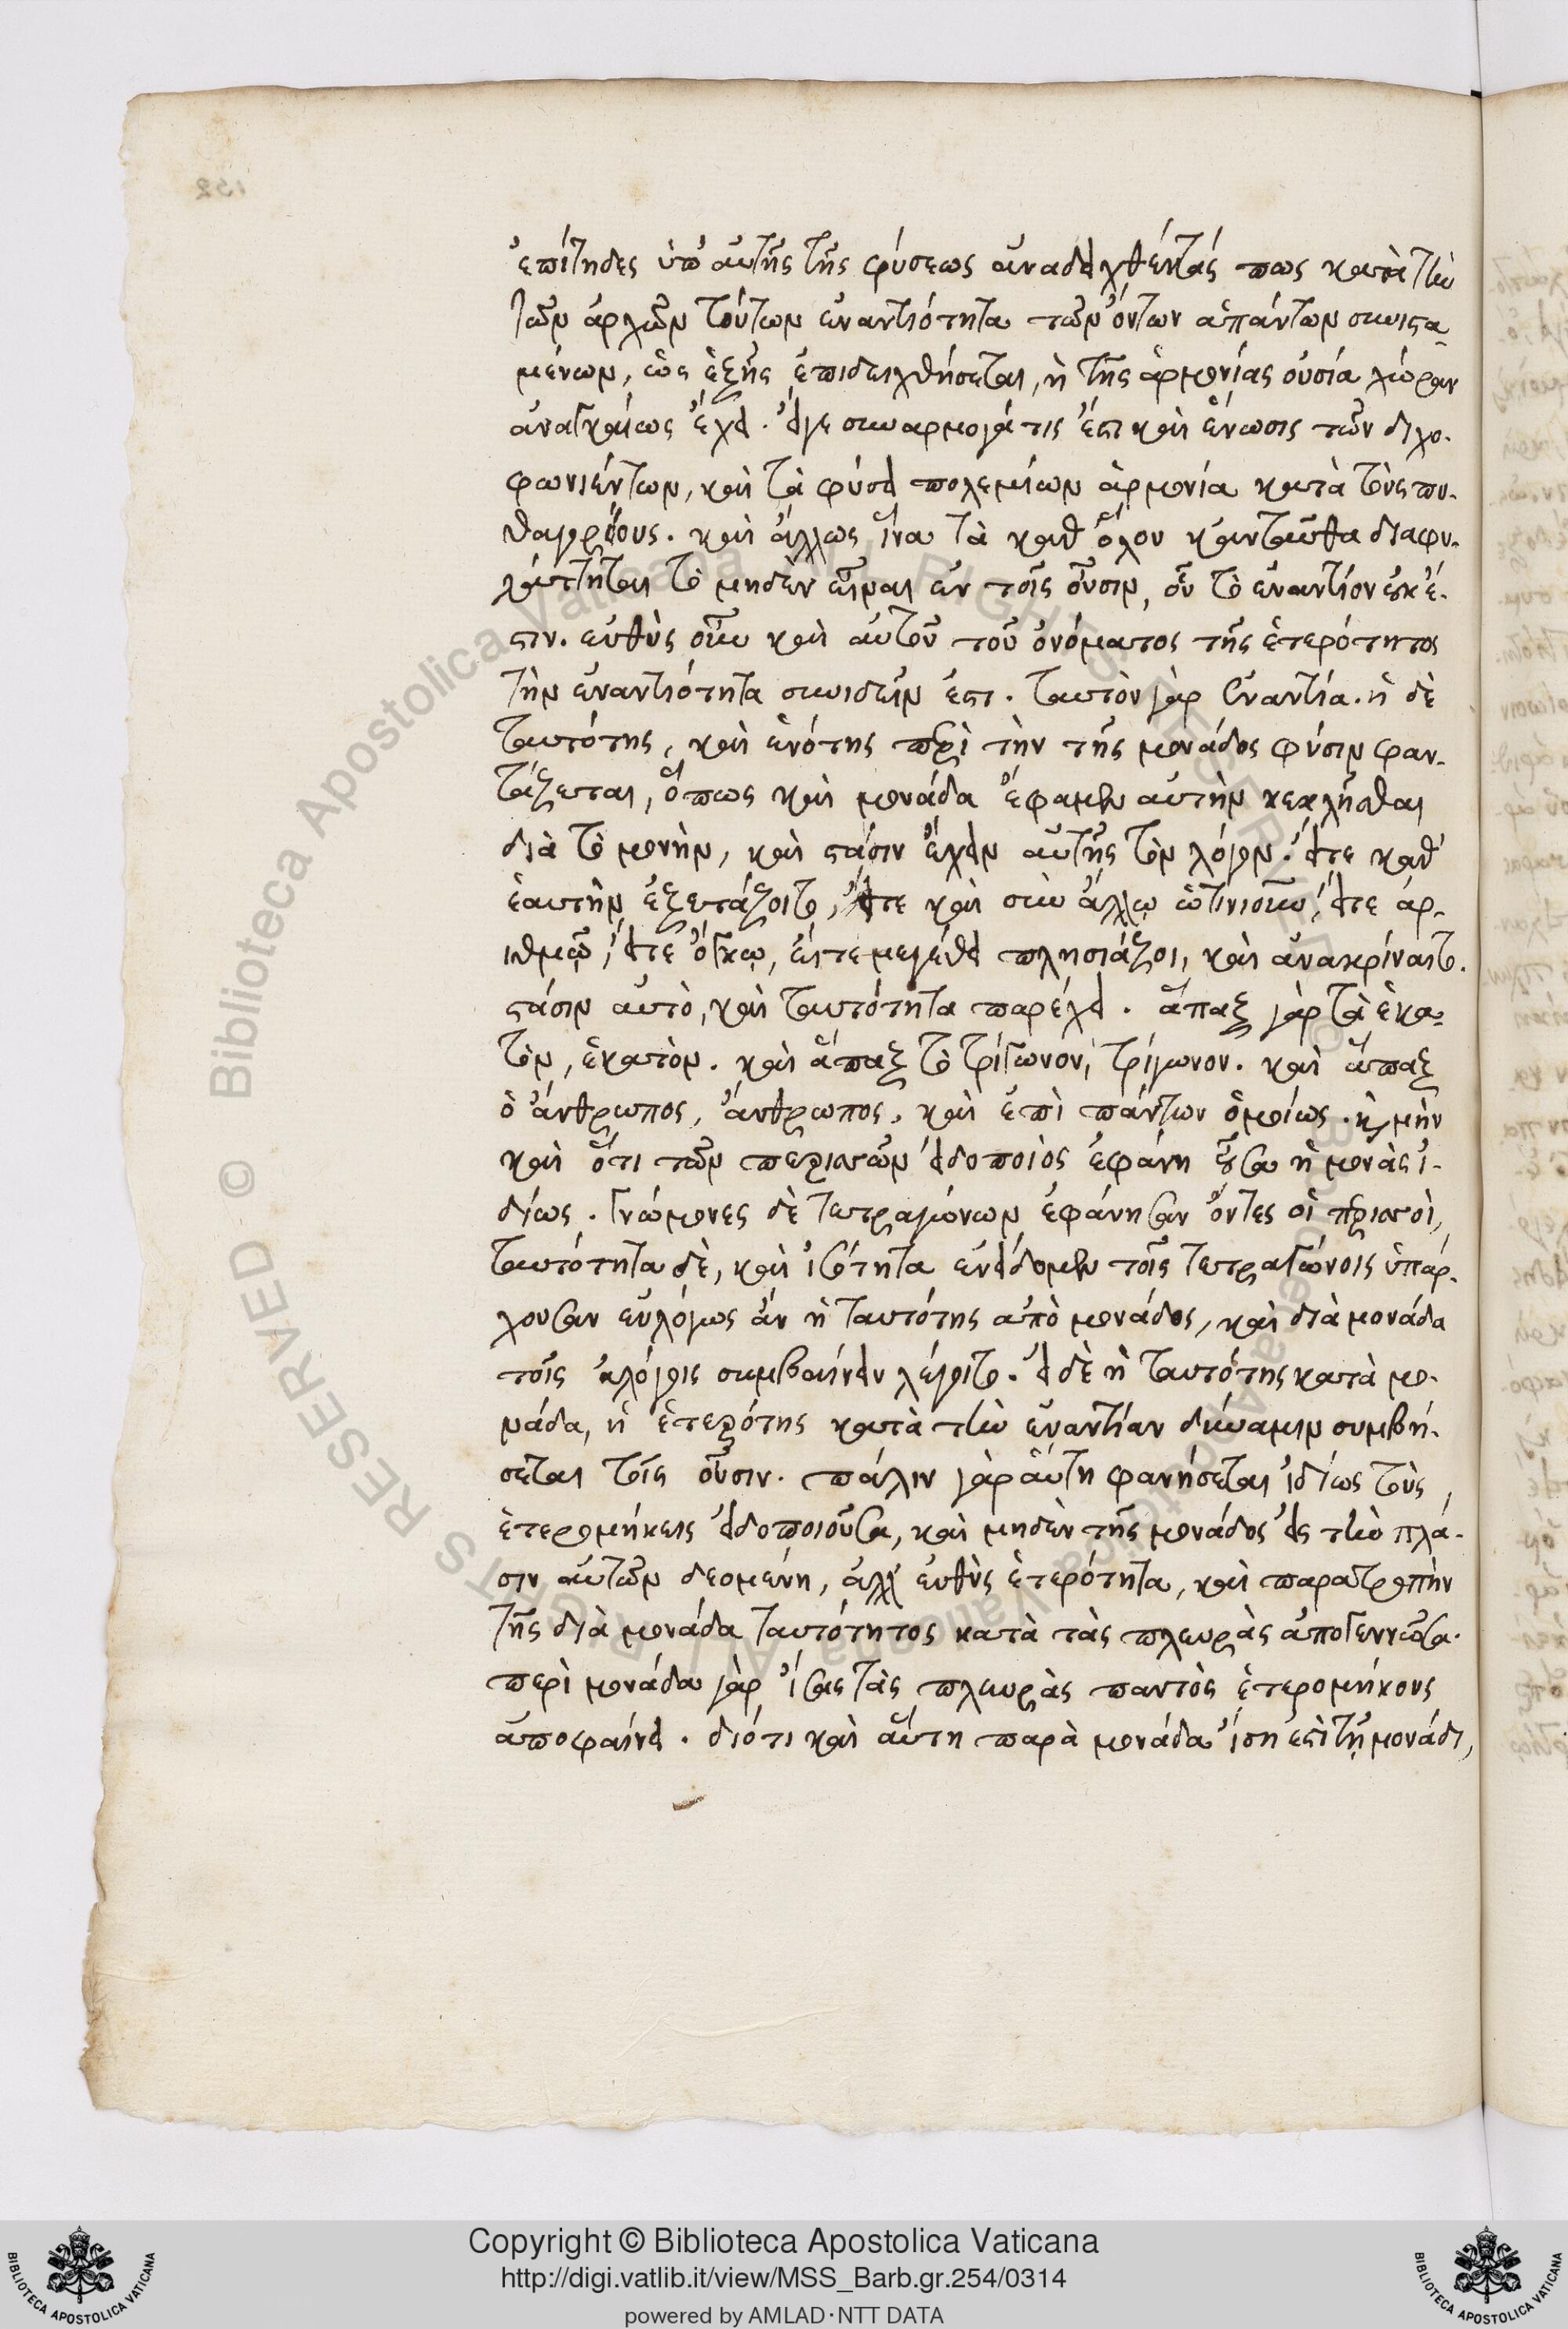 ἐπίτηδες ὑπ' αὐτῆς τῆς φύσεως ἀναδειχθέντάς πως κατὰ τὴν
τῶν ἀρχῶν τούτων ἐναντιότητα τῶν ὄντων ἁπάντων συνιστα-
μένων, ὡς ἑξῆς ἐπιδειχθήσεται, ἡ τῆς ἁρμονίας οὐσία χώραν
ἀναγκαίως ἔχει. εἴγε συναρμογά τις ἐστι καὶ ἕνωσις τῶν διχο-
φωνιέντων, καὶ τὰ φύσει πολεμίων ἁρμονία κατὰ τοὺς πυ-
θαγορείους. καὶ ἄλλως ἵνα τὰ καθ' ὅλου κἀνταῦθα διαφυ-
λάττηται τὸ μηδὲν εἶναι ἐν τοῖς οὖσιν, οὗ τὸ ἐναντίον οὐκ ἔ-
στιν. εὐθὺς οὖν καὶ αὐτοῦ τοῦ ὀνόματος τῆς ἑτερότητος
τὴν ἐναντιότητα συνιδεῖν ἐστι. ταυτὸν γὰρ ἐναντία. ἡ δὲ
ταυτότης, καὶ ἑνότης περὶ τὴν τῆς μονάδος φύσιν φαν-
τάζεται, ὅπως καὶ μονάδα ἔφαμεν αὐτὴν κεκλῆσθαι
διὰ τὸ μονὴν, καὶ στάσιν ἔχειν αὐτῆς τὸν λόγον. εἴτε καθ'
ἑαυτὴν ἐξετάζοιτο, εἴτε καὶ σὺν ἄλλῳ ᾡτινιοῦν, εἴτε ἀρ-
ιθμῷ, εἴτε ὄγκῳ, εἴτε μεγέθει πλησιάζοι, καὶ ἀνακρίναιτο.
στάσιν αὐτὸ, καὶ ταυτότητα παρέχει. ἅπαξ γὰρ τὰ ἑκα-
τὸν, ἑκατὸν. καὶ ἅπαξ τὸ τρίγωνον, τρίγωνον. καὶ ἅπαξ
ὁ ἄνθρωπος, ἄνθρωπος, καὶ ἐπὶ πάντων ὁμοίως. καὶ μὴν
καὶ ὅτι τῶν περισσῶν εἰδοποιὸς ἐφάνη οὖσα ἡ μονὰς ἰ-
δίως. γνώμονες δὲ τετραγώνων ἐφάνησαν ὄντες οἱ περισσοὶ,
ταυτότητα δὲ, καὶ ἰσότητα ἐνείδομεν τοῖς τετραγώνοις ὑπάρ-
χουσαν εὐλόγως ἂν ἡ ταυτότης ἀπὸ μονάδος, καὶ διὰ μονάδα
τοῖς ἀλόγοις συμβαίνειν λέγοιτο. εἰ δὲ ἡ ταυτότης κατὰ μο-
νάδα, ἡ ἑτερότης κατὰ τὴν ἐναντίαν δύναμιν συμβή-
σεται τοῖς οὖσιν. πάλιν γὰρ αὕτη φανήσεται ἰδίως τοὺς
ἑτερομήκεις εἰδοποιοῦσα, καὶ μηδὲν τῆς μονάδος εἰς τὴν πλά-
σιν αὐτῶν δεομένη, ἀλλ' εὐθὺς ἑτερότητα, καὶ παρατροπὴν
τῆς διὰ μονάδα ταυτότητος κατὰ τὰς πλευρὰς ἀπογεννῶσα.
περὶ μονάδα γὰρ ἴσας τὰς πλευρὰς παντὸς ἑτερομήκους
ἀποφαίνει. διότι καὶ αὕτη παρὰ μονάδα ἴση ἐστὶ τῇ μονάδι,
Copyright © Biblioteca Apostolica Vaticana
http://digi.vatlib.it/view/MSS_Barb.gr.254/0314
powered by AMLAD·NTT DATA